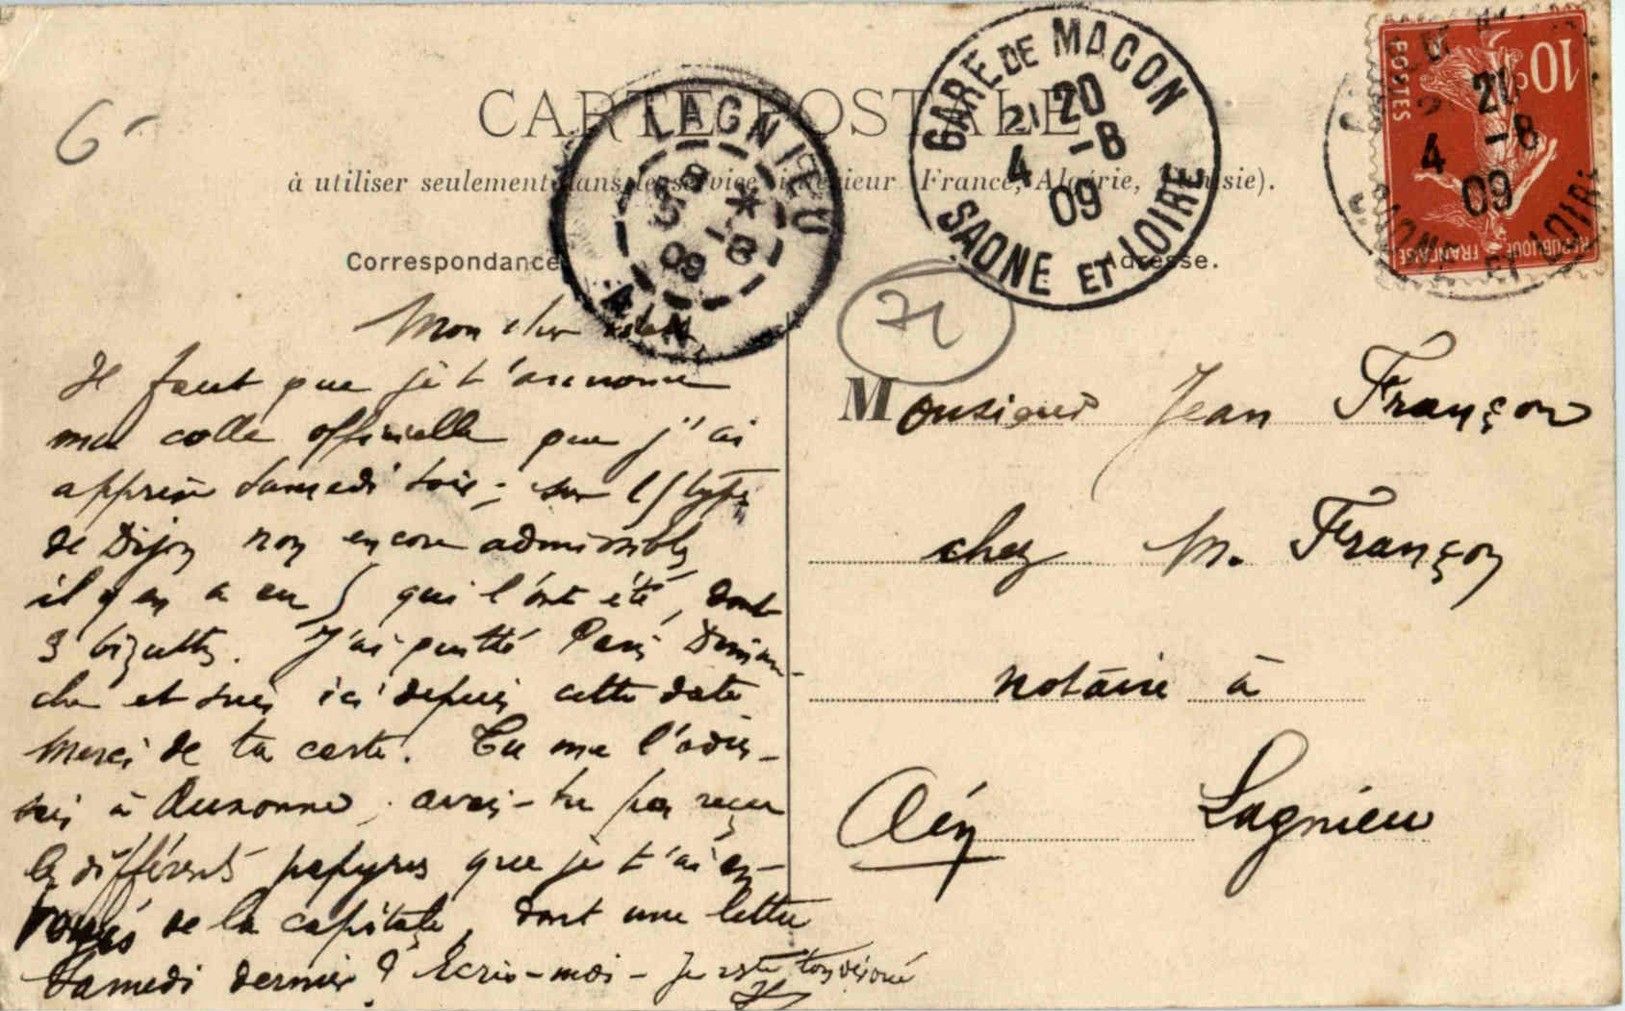 CARTE POSTALE
à utiliser seulement dans le service intérieur (France, Algérie, Tunisie).
Correspondance
Adresse.
6-
LAGNIEU
8 *
5 -8
09
AIN
GARE DE MACON
21 20
4 -8
09
SAONE ET LOIRE
10c
POSTES
REPUBLIQUE FRANÇAISE
21
4 -8
09
SAONE ET LOIRE
71
Mon cher
Il faut que je t'annonce
ma colle officielle que j'ai
apprise Samedi soir; sur 15 types
de Dijon non encore admissibles
il y en a eu 5 qui l'ont été, dont
3 bizuths. J'ai quitté Paris Diman-
che et suis ici depuis cette date
Merci de ta carte. Tu me l'adres-
sais à Auxonne, avais-tu pas reçu
les différents papyrus que je t'ai en-
voyés de la capitale, dont une lettre
Samedi dernier? Ecris-moi - Je reste ton dévoué
Monsieur Jean Françon
chez M. Françon
notaire à
Lagnieu
Ain